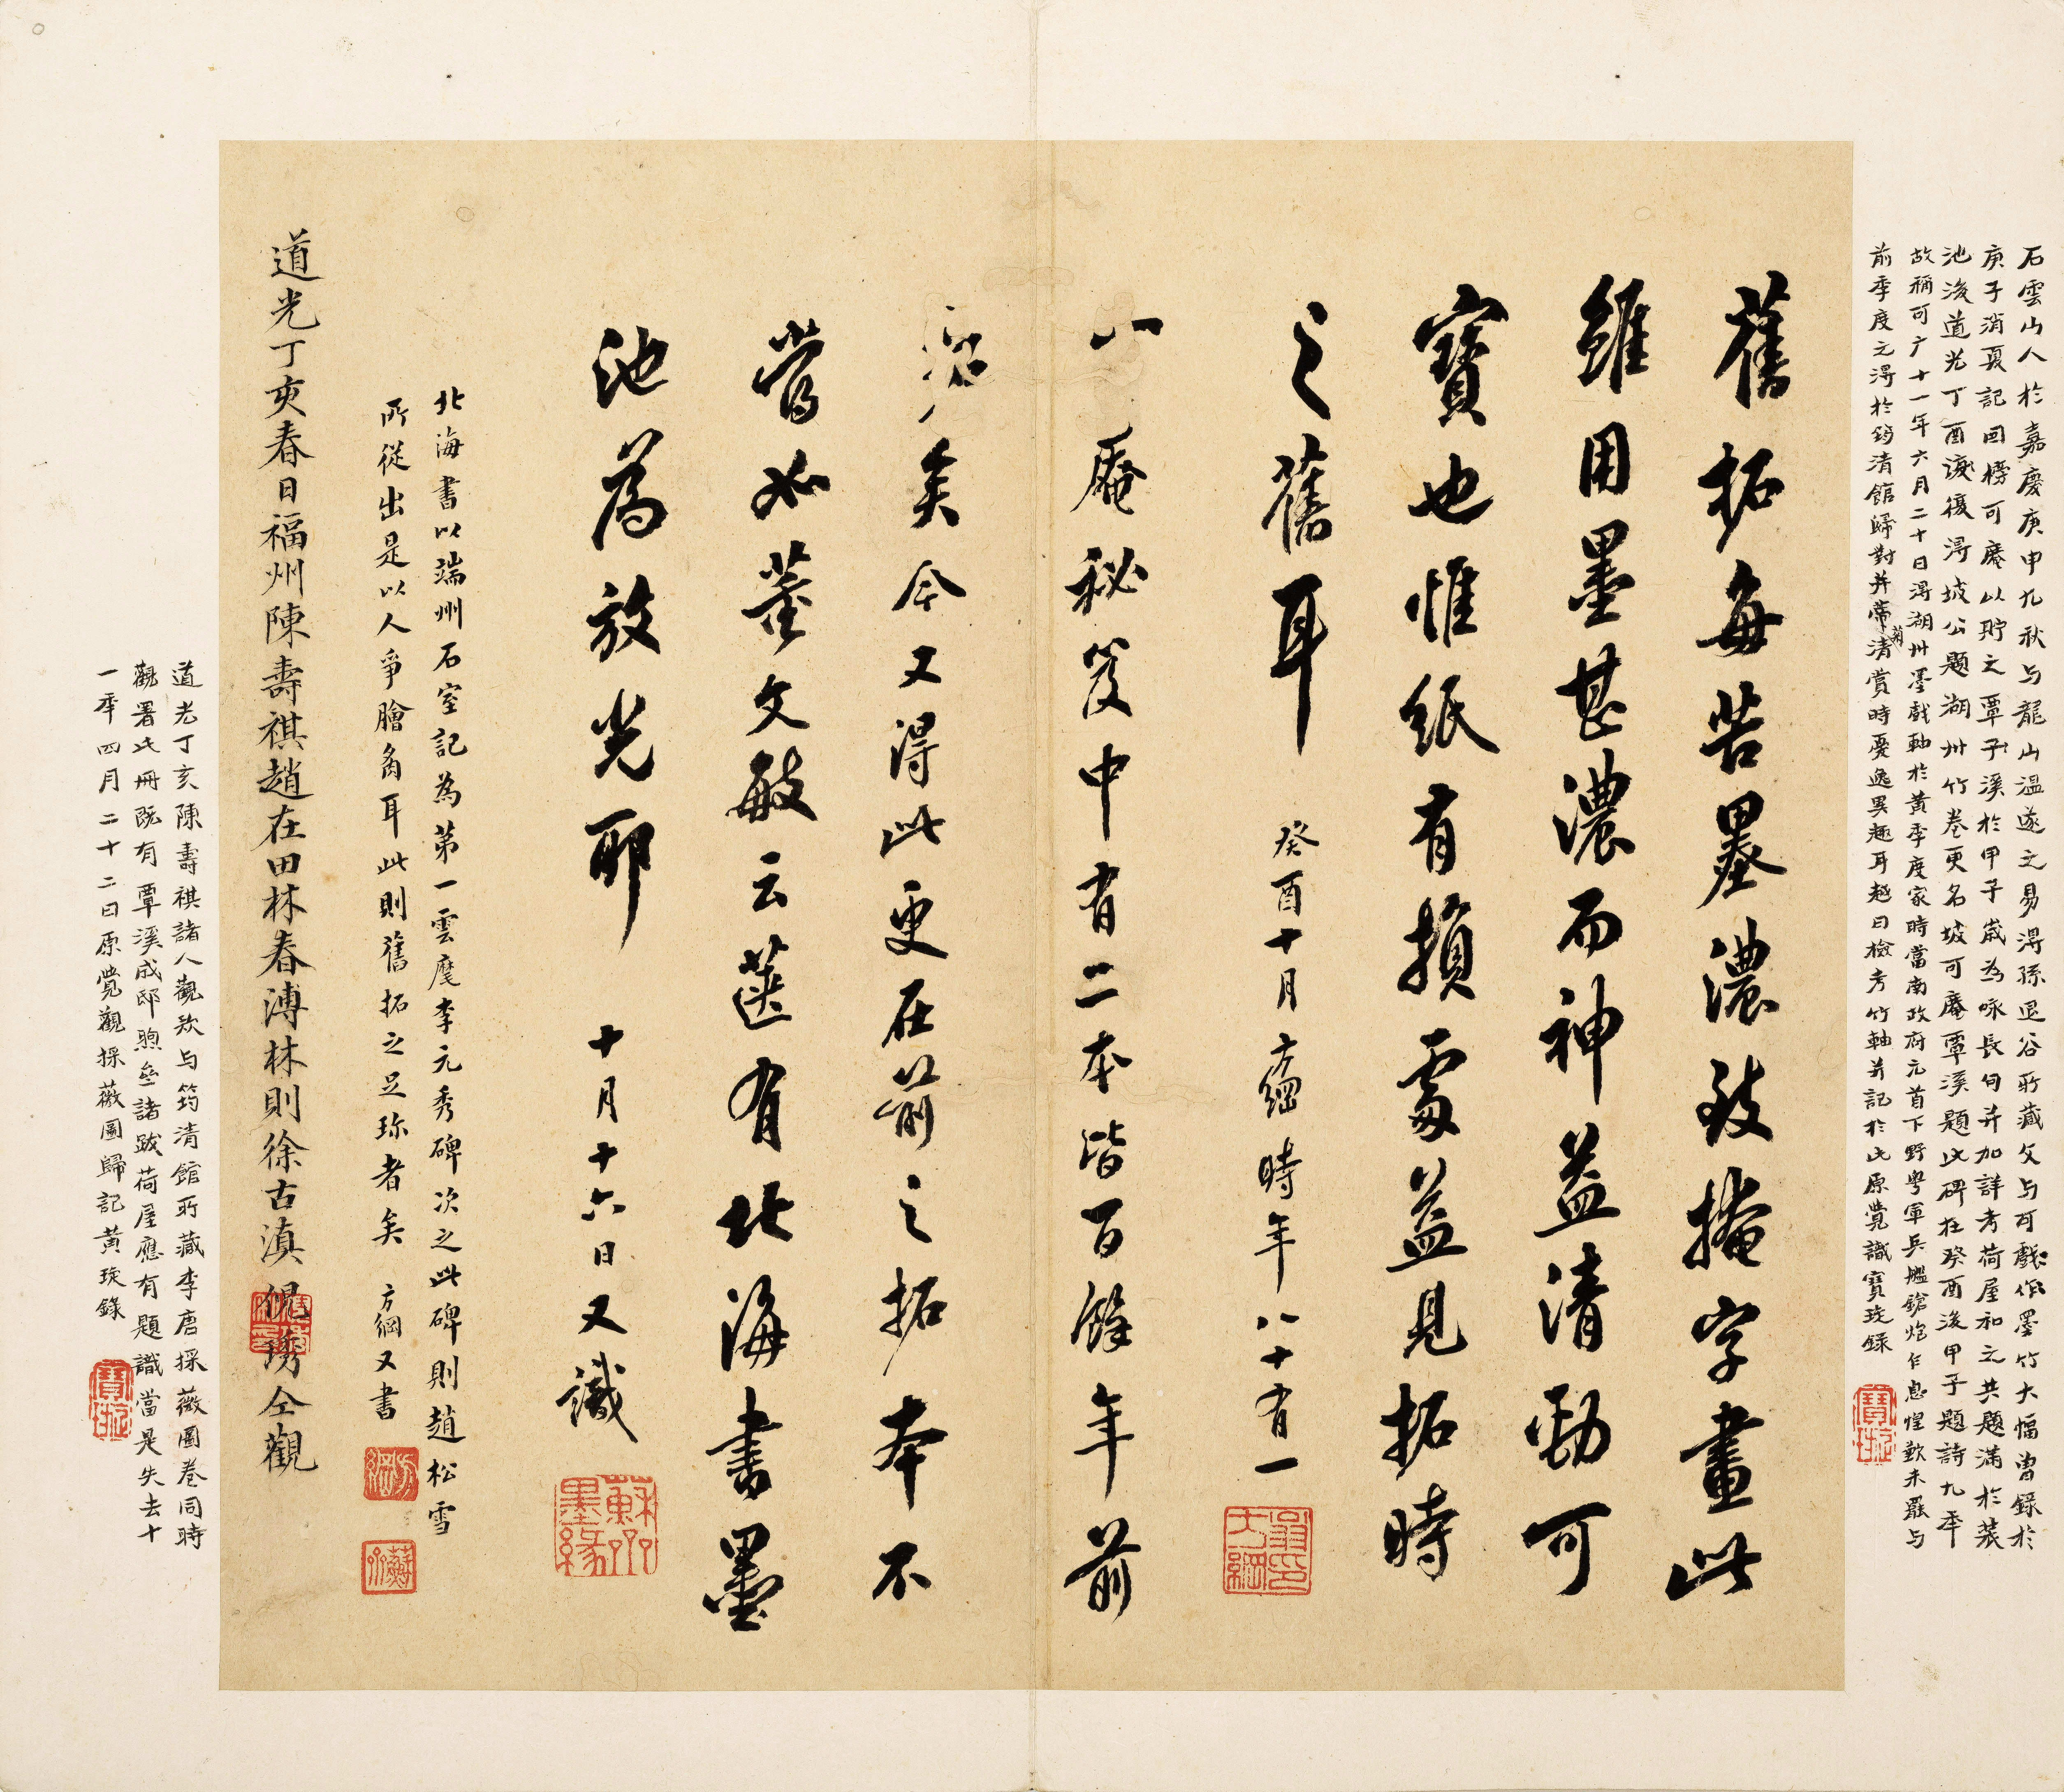 石雲山人於嘉慶庚申九秋与龍山溫遂之易得孫退谷所藏文与可戲作墨竹大幅曾錄於
庚子消夏記回榜可庵以貯之覃溪於甲子歲為咏長句并加詳考荷屋和之共題滿於裝
池後道光丁酉復得坡公題湖州竹卷更名坡可庵覃溪題此碑在癸酉後甲子題詩九年
故稱可广十一年六月二十日得湖州墨戲軸於黃季度家時當南政府元首下野粵軍兵艦鎗炮乍息惶歎未罷与
前季度之得於筠清館歸對并帶清賞時憂逸異趣耳越日檢考竹軸并記於此原覺識寶琁錄
舊拓每苦墨濃致掩字畫此
雖用墨甚濃而神益清勁可
寶也惟紙有損處益見拓時
之舊耳 癸酉十月方綱時年八十有一
可庵秘笈中有二本皆百餘年前
拓矣今又得此更在前之拓本不
當如董文敏云篋有北海書墨
池為放光耶 十月十六日又識
北海書以端州石室記為第一雲麾李元秀碑次之此碑則趙松雪
所從出是以人爭膾炙耳此則舊拓之足珎者矣 方綱又書
道光丁亥春日福州陳壽祺趙在田林春溥林則徐古滇倪琇仝觀
道光丁亥陳壽祺諸人觀款与筠清館所藏李唐採薇圖卷同時
觀署此冊既有覃溪成邸煦壘諸跋荷屋應有題識當是失去十
一年四月二十二日原覺觀採薇圖歸記黃琁錄